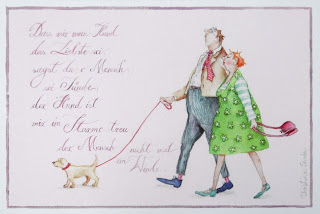 Dass mir mein Hund
das Liebste sei,
sagst du o Mensch
sei Sünde,
der Hund ist
mir im Sturme treu
der Mensch nicht mal
im Winde.